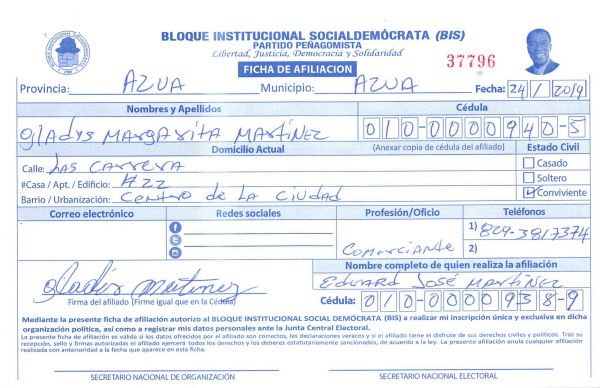 BLOQUE INSTITUCIONAL SOCIALDEMÓCRATA (BIS)
PARTIDO PEÑAGOMISTA
Libertad, Justicia, Democracia y Solidaridad
37796
FICHA DE AFILIACION
Provincia: AZUA Municipio: AZUA Fecha: 24/1/2019
Nombres y Apellidos Cédula
gladys MARGARITA MARTÍNEZ 010-0000940-5
Domicilio Actual (Anexar copia de cédula del afiliado) Estado Civil
Calle: LAS CARRERA Casado
#Casa / Apt. / Edificio: #22 Soltero
Barrio / Urbanización: CENTRO de LA CIUDAD Conviviente
Correo electrónico Redes sociales Profesión/Oficio Teléfonos
1) 829-3817374
COMERCIANTE 2)
Nombre completo de quien realiza la afiliación
Gladis Martinez EDUARD JOSÉ MARTÍNEZ
Firma del afiliado (Firme igual que en la Cédula) Cédula: 010-0000938-9
Mediante la presente ficha de afiliación autorizo al BLOQUE INSTITUCIONAL SOCIAL DEMÓCRATA (BIS) a realizar mi inscripción única y exclusiva en dicha
organización política, así como a registrar mis datos personales ante la Junta Central Electoral.
La presente ficha de afiliación es válida si los datos ofrecidos por el afiliado son correctos, las declaraciones veraces y si el afiliado tiene el disfrute de sus derechos civiles y políticos. Tras su
recepción, sello y firmas autorizadas el afiliado ejercerá todos los derechos y los deberes estatutariamente sancionados, de acuerdo a la ley. La presente afiliación anula cualquier afiliación
realizada con anterioridad a la fecha que aparece en esta ficha.
SECRETARIO NACIONAL DE ORGANIZACIÓN SECRETARIO NACIONAL ELECTORAL